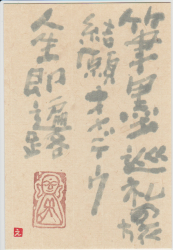 筆墨巡礼の旅
結願オメデトウ
人生即遍路
え